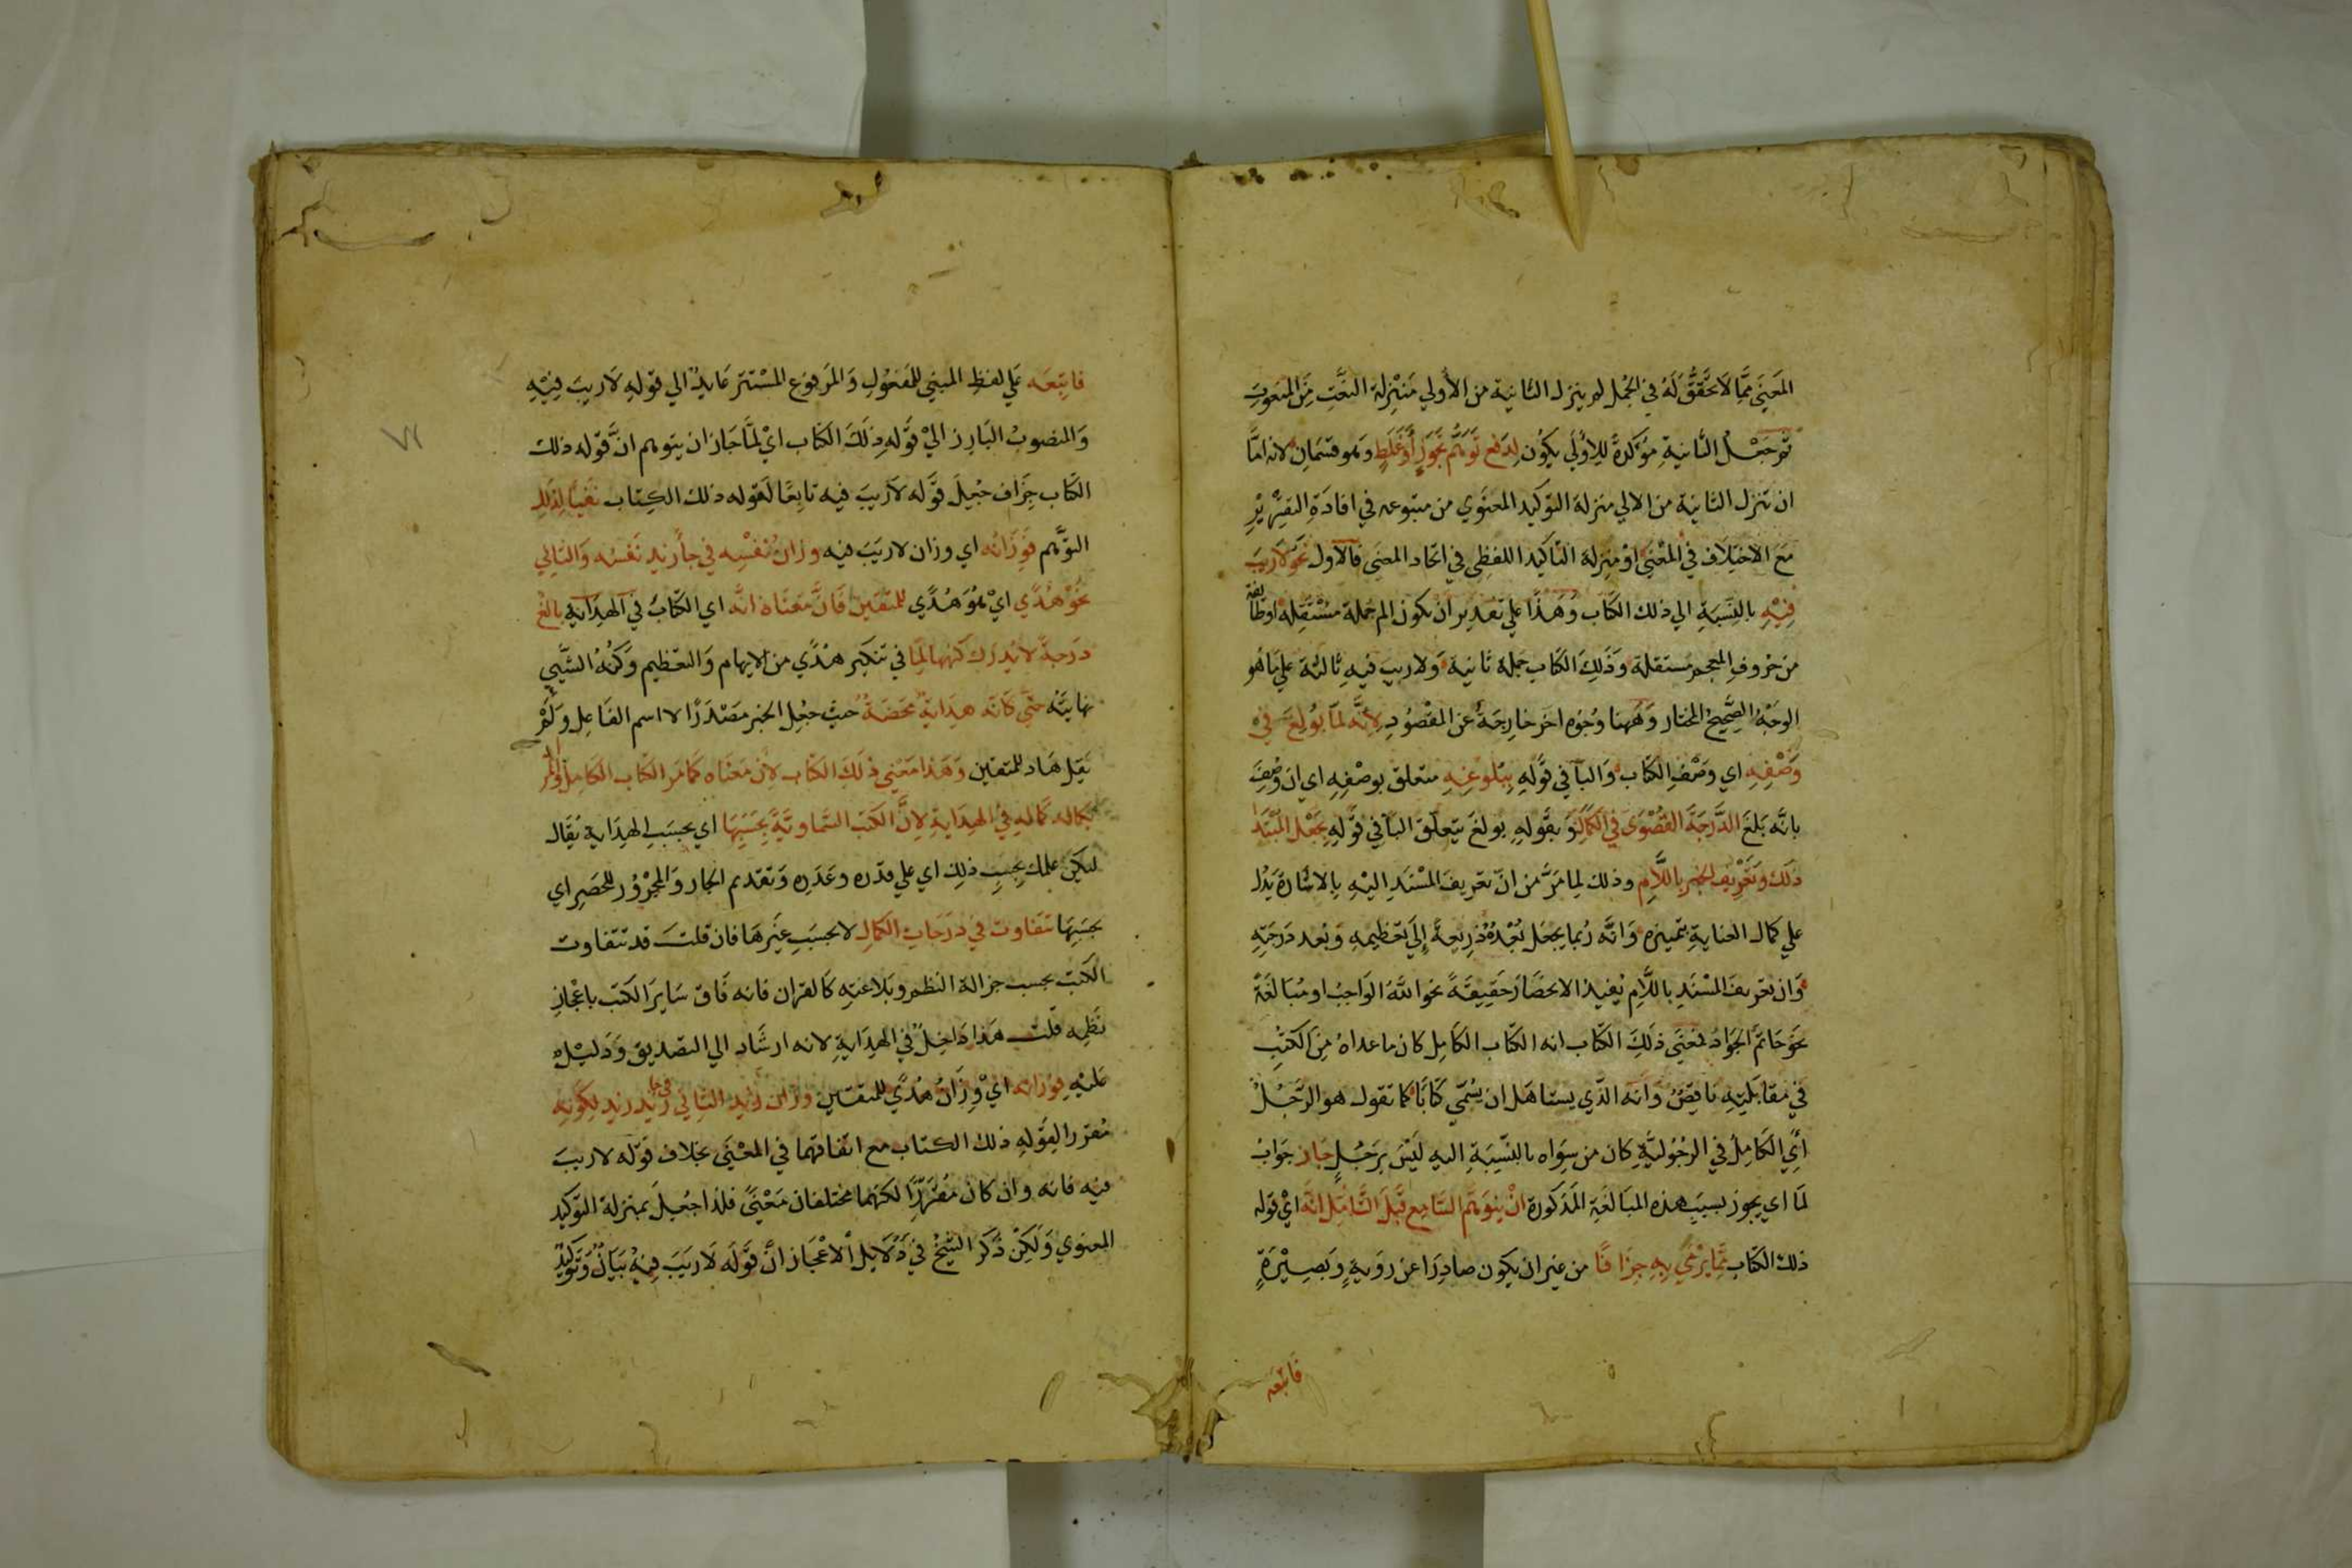 المعنى مما لا تحقق له في الجمل لم ينزل الثانية من الأولي منزلة النعت من المنعوت
ثم جعل الثانية مؤكدة للاولي يكون لدفع توهم تجوز أو غلط وهو قسمان لانه اما
ان تنزل الثانية من الاولي منزلة التوكيد المعنوي من متبوعه في افادة التقرير
مع الاختلاف في المعنى او منزلة التاكيد اللفظي في اتحاد المعنى فالاول نحو لا ريب
فيه بالنسبة الي ذلك الكتاب وهذا علي تقدير ان يكون الم جملة مستقلة او طائفة
من حروف المعجم مستقلة وذلك الكتاب جملة ثانية ولا ريب فيه ثالثة علي ما هو
الوجه الصحيح المختار وههنا وجوه اخر خارجة عن المقصود لأنه لما بولغ في
وصفه اي وصف الكتاب والبآ في قوله ببلوغه متعلق بوصفه اي ان وصف
بانه بلغ الدرجة القصوى في الكمال وبقوله بولغ يتعلق البآ في قوله بجعل المبتدا
ذلك وتعريف الخبر باللام وذلك لما مر من ان تعريف المسند اليه بالاشارة يدل
علي كمال العناية بتميزه وانه ربما يجعل بعده ذريعة إلى تعظيمه وبعد درجته
وان تعريف المسند باللام يفيد الانحصار حقيقة نحو الله الواجب او مبالغة
نحو حاتم الجواد فمعنى ذلك الكتاب انه الكتاب الكامل كان ما عداه من الكتب
في مقابلته ناقص وانه الذي يستاهل ان يسمي كتابا كما تقول هو الرجل
أي الكامل في الرجولية كان من سواه بالنسبة اليه ليس برجل جاز جواب
لما اي يجوز بسبب هذه المبالغة المذكورة ان يتوهم السامع قبل التامل انه اي قوله
ذلك الكتاب مما يرمي به جزافا من غير ان يكون صادرا عن روية وبصيرة
فاتبعه
فاتبعه علي لفظ المبني للمفعول والمرفوع المستتر عايد الي قوله لا ريب فيه
والمنصوب البارز الي قوله ذلك الكتاب اي لما جاز ان يتوهم ان قوله ذلك
الكتاب جزاف جعل قوله لا ريب فيه تابعا لقوله ذلك الكتاب نفيا لذلك
التوهم فوزانه اي وزان لا ريب فيه وزان نفسه في جاء زيد نفسه والثاني
نحو هدي اي هو هدي للمتقين فان معناه انه اي الكتاب في الهداية بالغ
درجة لا يدرك كنهها لما في تنكير هدي من الابهام والتعظيم وكنه الشيي
نهايته حتي كانه هداية محضة حيث جعل الخبر مصدرا لا اسم الفاعل ولم
يقل هاد للمتقين وهذا معني ذلك الكتاب لان معناه كما مر الكتاب الكامل والمراد
بكماله كماله في الهداية لان الكتب السماوية بحسبها اي بحسب الهداية يقال
ليكن عملك بحسب ذلك اي علي قدره وعدده وتقديم الجار والمجرور للحصر اي
بحسبها تتفاوت في درجات الكمال لا بحسب غيرها فان قلت قد تتفاوت
الكتب بحسب جزالة النظم وبلاغته كالقران فانه فاق ساير الكتب باعجاز
نظمه قلت هذا داخل في الهداية لانه ارشاد الي التصديق ودليل
عليه فوزانه اي وزان هدي للمتقين وزان زيد الثاني في جا زيد زيد لكونه
مقررا لقوله ذلك الكتاب مع اتفاقهما في المعنى بخلاف قوله لا ريب
فيه فانه وان كان مقررا لكنهما مختلفان معنى فلذا جعل بمنزلة التوكيد
المعنوي ولكن ذكر الشيخ في دلايل الاعجاز ان قوله لا ريب فيه بيان وتوكيد